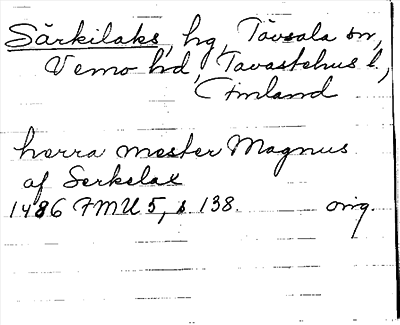 Särkilaks, hg, Tövsala sn,
Vemo hd, Tavastehus l.,
Finland
herra mester Magnus
af Serkelax
1486 FMU 5, s 138. orig.